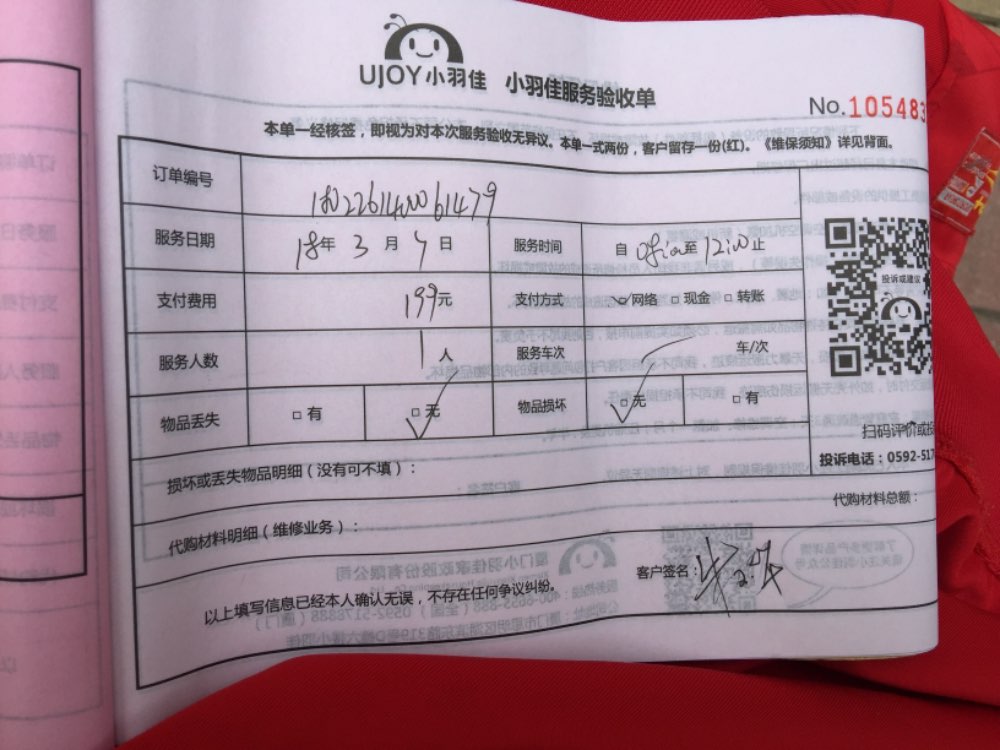 UJOY小羽佳 小羽佳服务验收单
No.105483
本单一经核签，即视为对本次服务验收无异议。本单一式两份，客户留存一份(红)。《维保须知》详见背面。
订单编号
服务日期 18年 3月 4日 服务时间 自 至 12:00止
支付费用 199元 支付方式 ☑网络 □现金 □转账
服务人数 1人 服务车次 车/次
物品丢失 □有 ☑无 物品损坏 ☑无 □有
投诉或建议
扫码评价或投
投诉电话：0592-517
损坏或丢失物品明细（没有可不填）：
代购材料总额：
代购材料明细（维修业务）：
客户签名：
以上填写信息已经本人确认无误，不存在任何争议纠纷。